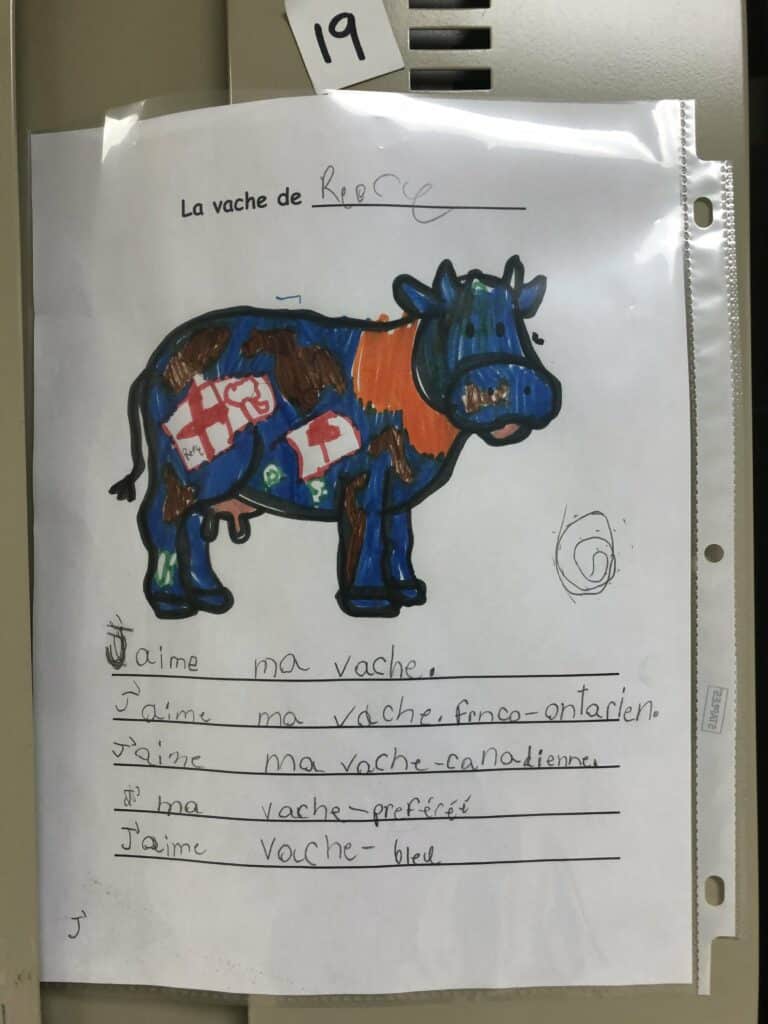 19
La vache de
J'aime ma vache.
J'aime ma vache. frnco-ontarien.
J'aime ma vache-canadienne.
ma vache-preféréé
J'aime vache-bleu
J